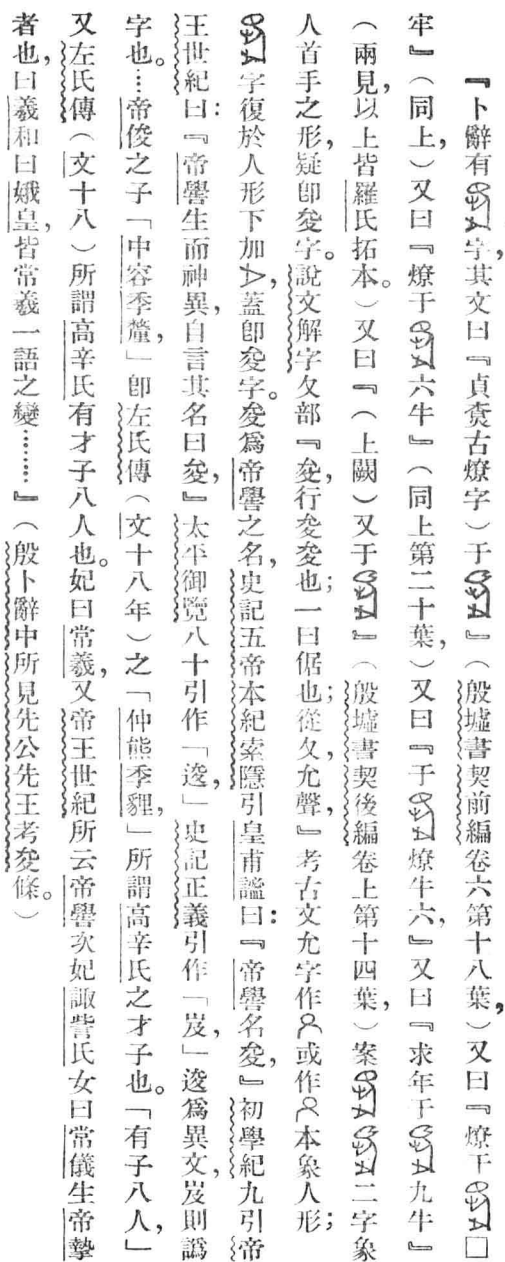 『卜辭有字，其文曰『貞賁古燎字）于』（殷墟書契前編卷六第十八葉，）又曰『燎于□
牢』（同上，）又曰『燎于六牛』（同上第二十葉，）又曰『于燎牛六，』又曰『求年于九牛』
（兩見，以上皆羅氏拓本。）又曰『（上闕）又于』（殷墟書契後編卷上第十四葉，）案二字象
人首手之形，疑卽夋字。說文解字夊部『夋，行夋夋也；一曰倨也；從夊允聲，』考古文允字作或作本象人形；
字復於人形下加，蓋卽夋字。夋爲帝嚳之名，史記五帝本紀索隱引皇甫謐曰：『帝嚳名夋，』初學紀九引帝
王世紀曰：『帝嚳生而神異，自言其名曰夋，』太平御覽八十引作「逡，」史記正義引作「岌，」逡爲異文，岌則譌
字也。…帝俊之子「中容季釐，」卽左氏傳（文十八年）之「仲熊季貍，」所謂高辛氏之才子也。「有子八人，」
又左氏傳（文十八）所謂高辛氏有才子八人也。妃曰常羲，又帝王世紀所云帝嚳次妃諏訾氏女曰常儀生帝摯
者也，曰羲和曰娥皇，皆常羲一語之變………』（殷卜辭中所見先公先王考夋條。）